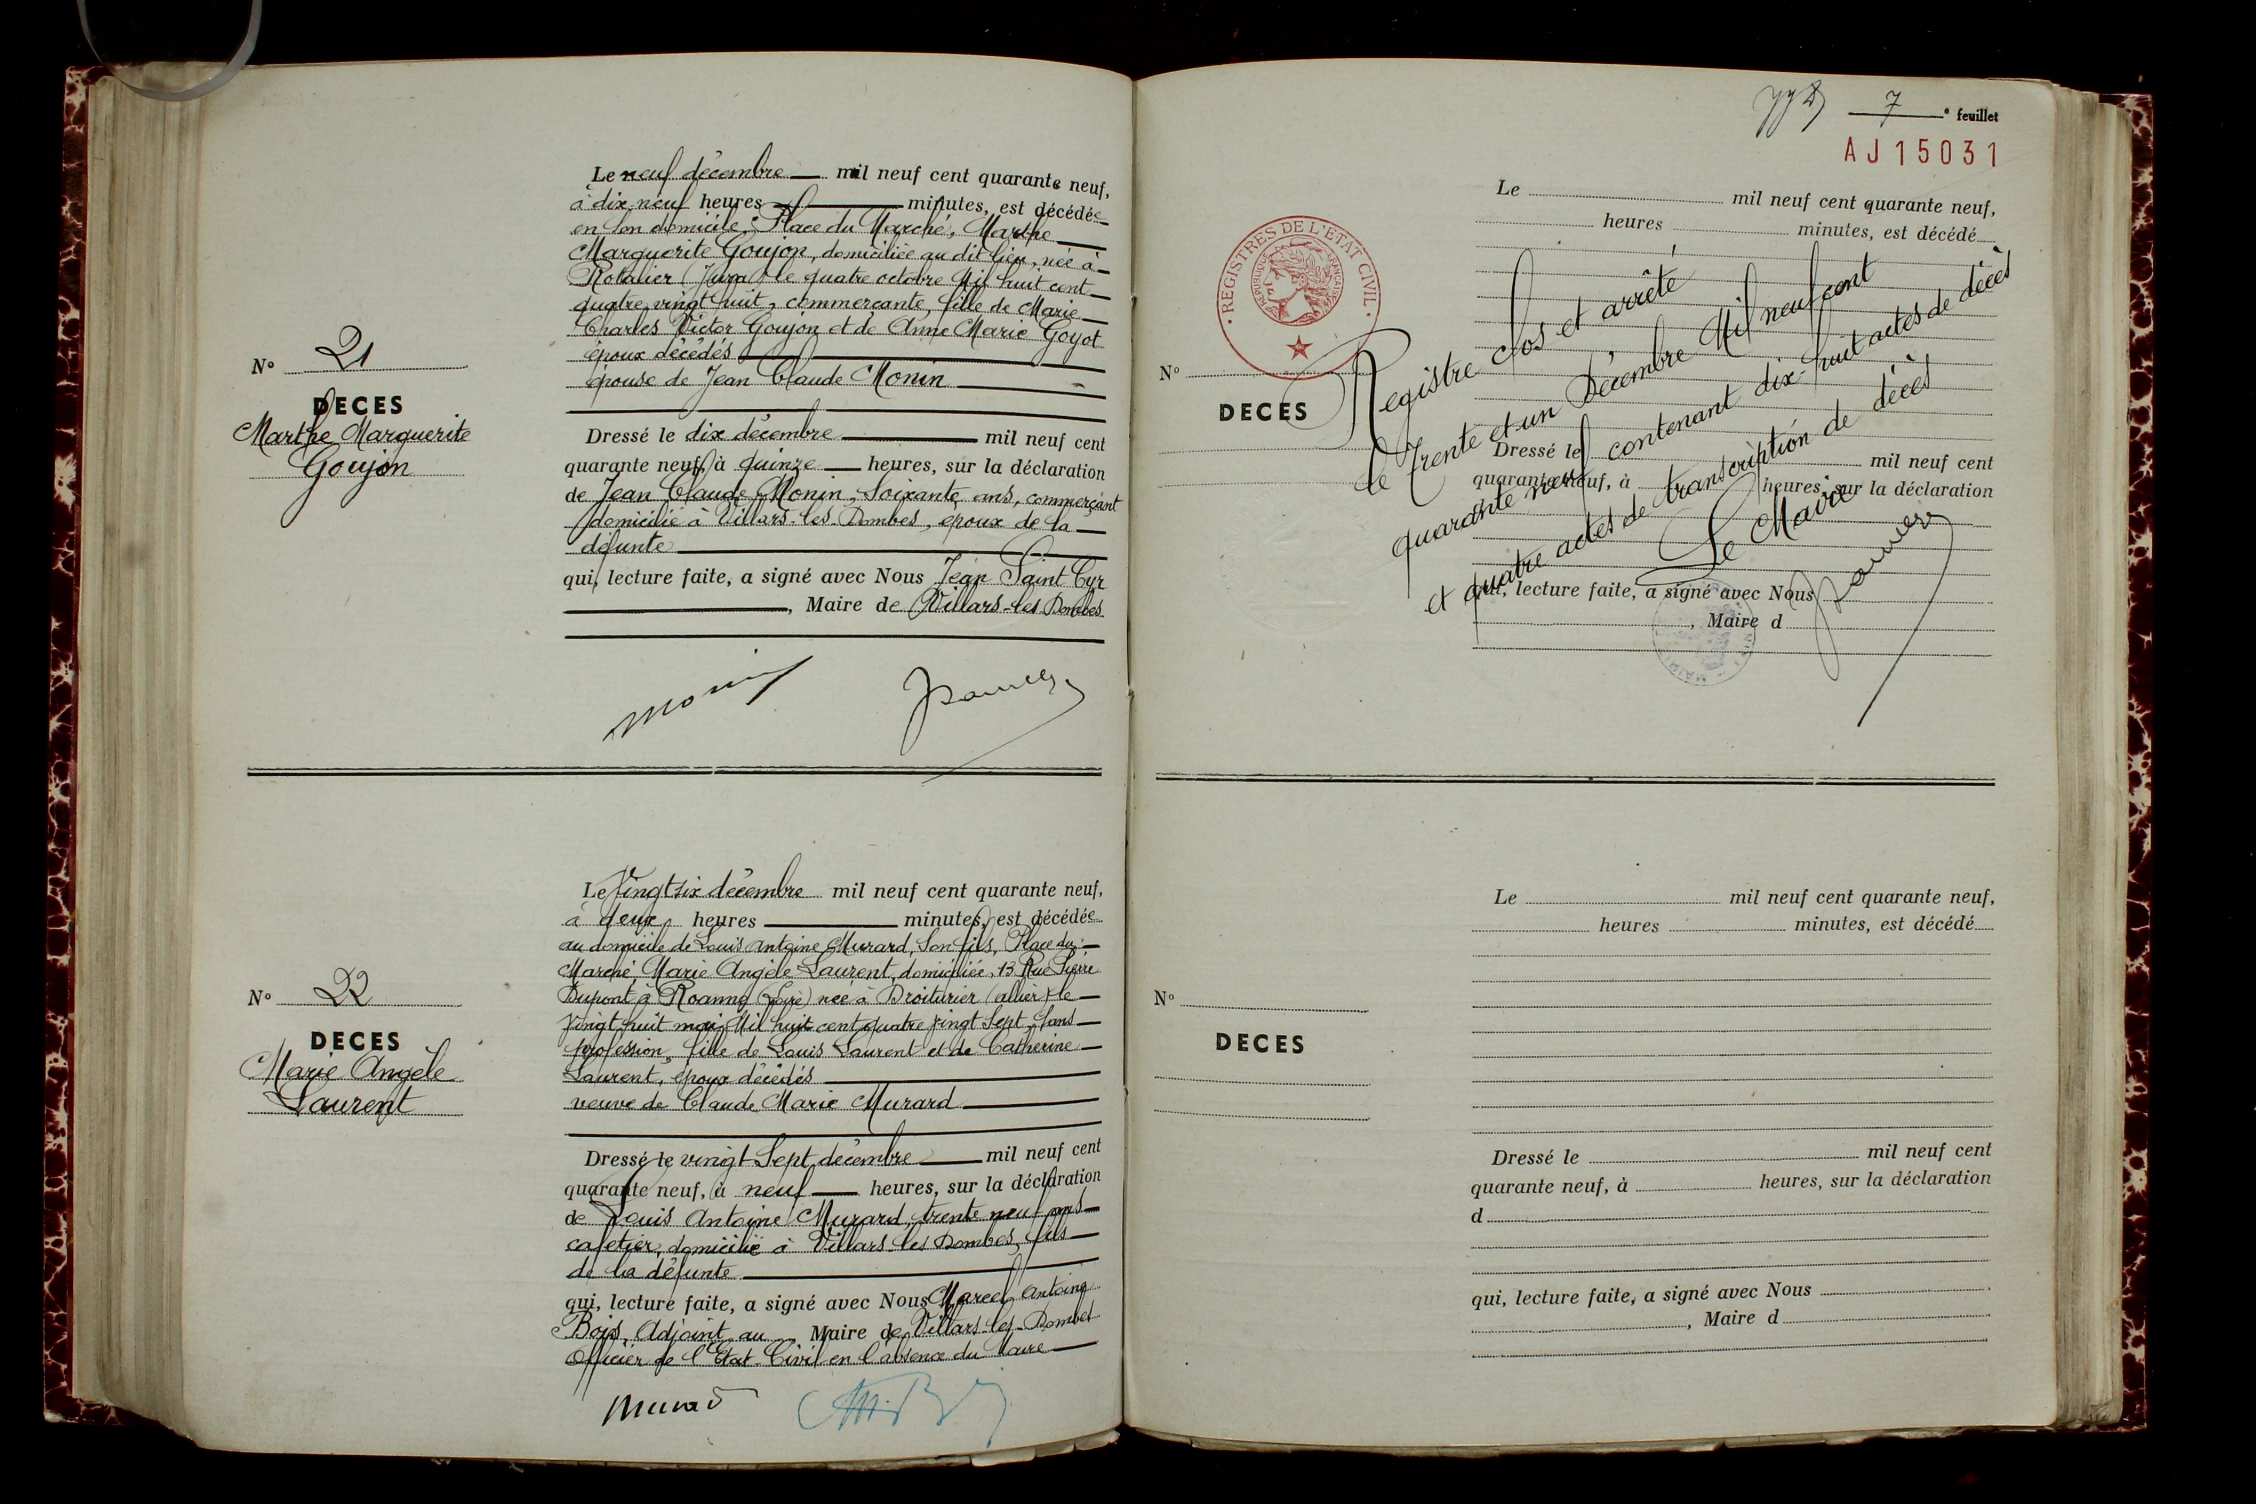 Le neuf décembre mil neuf cent quarante neuf,
à dix-neuf heures minutes, est décédée
en son domicile, Place du Marché, Marthe
Marguerite Goujon, domiciliée au dit lieu, née à
Rotalier (Jura) le quatre octobre Mil huit cent
quatre vingt huit, commerçante, fille de Marie
Charles Victor Goujon et de Anne Marie Goyot
époux décédés
épouse de Jean Claude Monin
N° 21
DECES
Marthe Marguerite
Goujon
Dressé le dix décembre mil neuf cent
quarante neuf, à quinze heures, sur la déclaration
de Jean Claude Monin, Soixante ans, commerçant
domicilié à Villars-les-Dombes, époux de la
défunte
qui, lecture faite, a signé avec Nous Jean Saint Cyr
, Maire de Villars-les Dombes
Monin
Le Vingt six décembre mil neuf cent quarante neuf,
à deux heures minutes, est décédée
au domicile de Louis Antoine Murard, son fils, Place du
Marché, Marie Angèle Laurent, domiciliée, 13 Rue Pierre
Dupont à Roanne (Loire) née à Droiturier (allier) le
vingt huit mai Mil huit cent quatre vingt Sept, sans
profession, fille de Louis Laurent et de Catherine
Laurent, époux décédés
veuve de Claude Marie Murard
N° 22
DECES
Marie Angèle
Laurent
Dressé le vingt Sept décembre mil neuf cent
quarante neuf, à neuf heures, sur la déclaration
de Louis Antoine Murard, trente neuf ans
cafetier, domicilié à Villars les Dombes, fils
de la défunte
qui, lecture faite, a signé avec Nous Marcel Antoine
Bois, Adjoint au Maire de Villars-les-Dombes
Officier de l'Etat-Civil en l'absence du Maire
Murard
7 e feuillet
AJ15031
REGISTRES DE L'ETAT CIVIL
REPUBLIQUE FRANCAISE
Le mil neuf cent quarante neuf,
heures minutes, est décédé
N°
DECES
Registre clos et arrêté
le Trente et un Décembre Mil neuf cent
quarante neuf contenant dix-huit actes de décès
et quatre actes de transcription de décès
Le Maire
Dressé le mil neuf cent
quarante neuf, à heures, sur la déclaration
qui, lecture faite, a signé avec Nous
, Maire d
Le mil neuf cent quarante neuf,
heures minutes, est décédé
N°
DECES
Dressé le mil neuf cent
quarante neuf, à heures, sur la déclaration
d
qui, lecture faite, a signé avec Nous
, Maire d